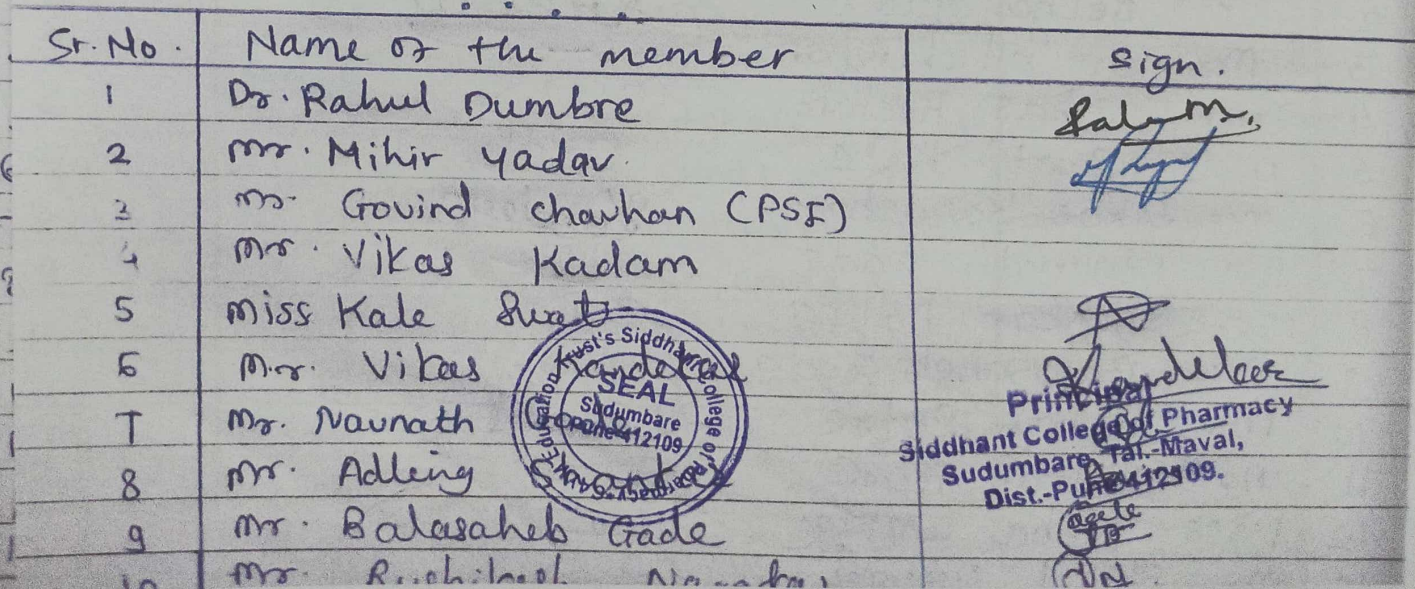 Sr. No. Name of the member Sign.
1 Dr. Rahul Dumbre
2 Mr. Mihir Yadav.
3 Mr. Govind Chavhan (PSI)
4 Mr. Vikas Kadam
5 Miss Kale Swati
6 Mr. Vikas Kandekar
7 Mr. Navnath
8 Mr. Adling
9 Mr. Balasaheb Gade
Mr.
SEAL
Sudumbare
Pune-412109
Principal
Siddhant College of Pharmacy
Sudumbare, Tal.-Maval,
Dist.-Pune-412109.